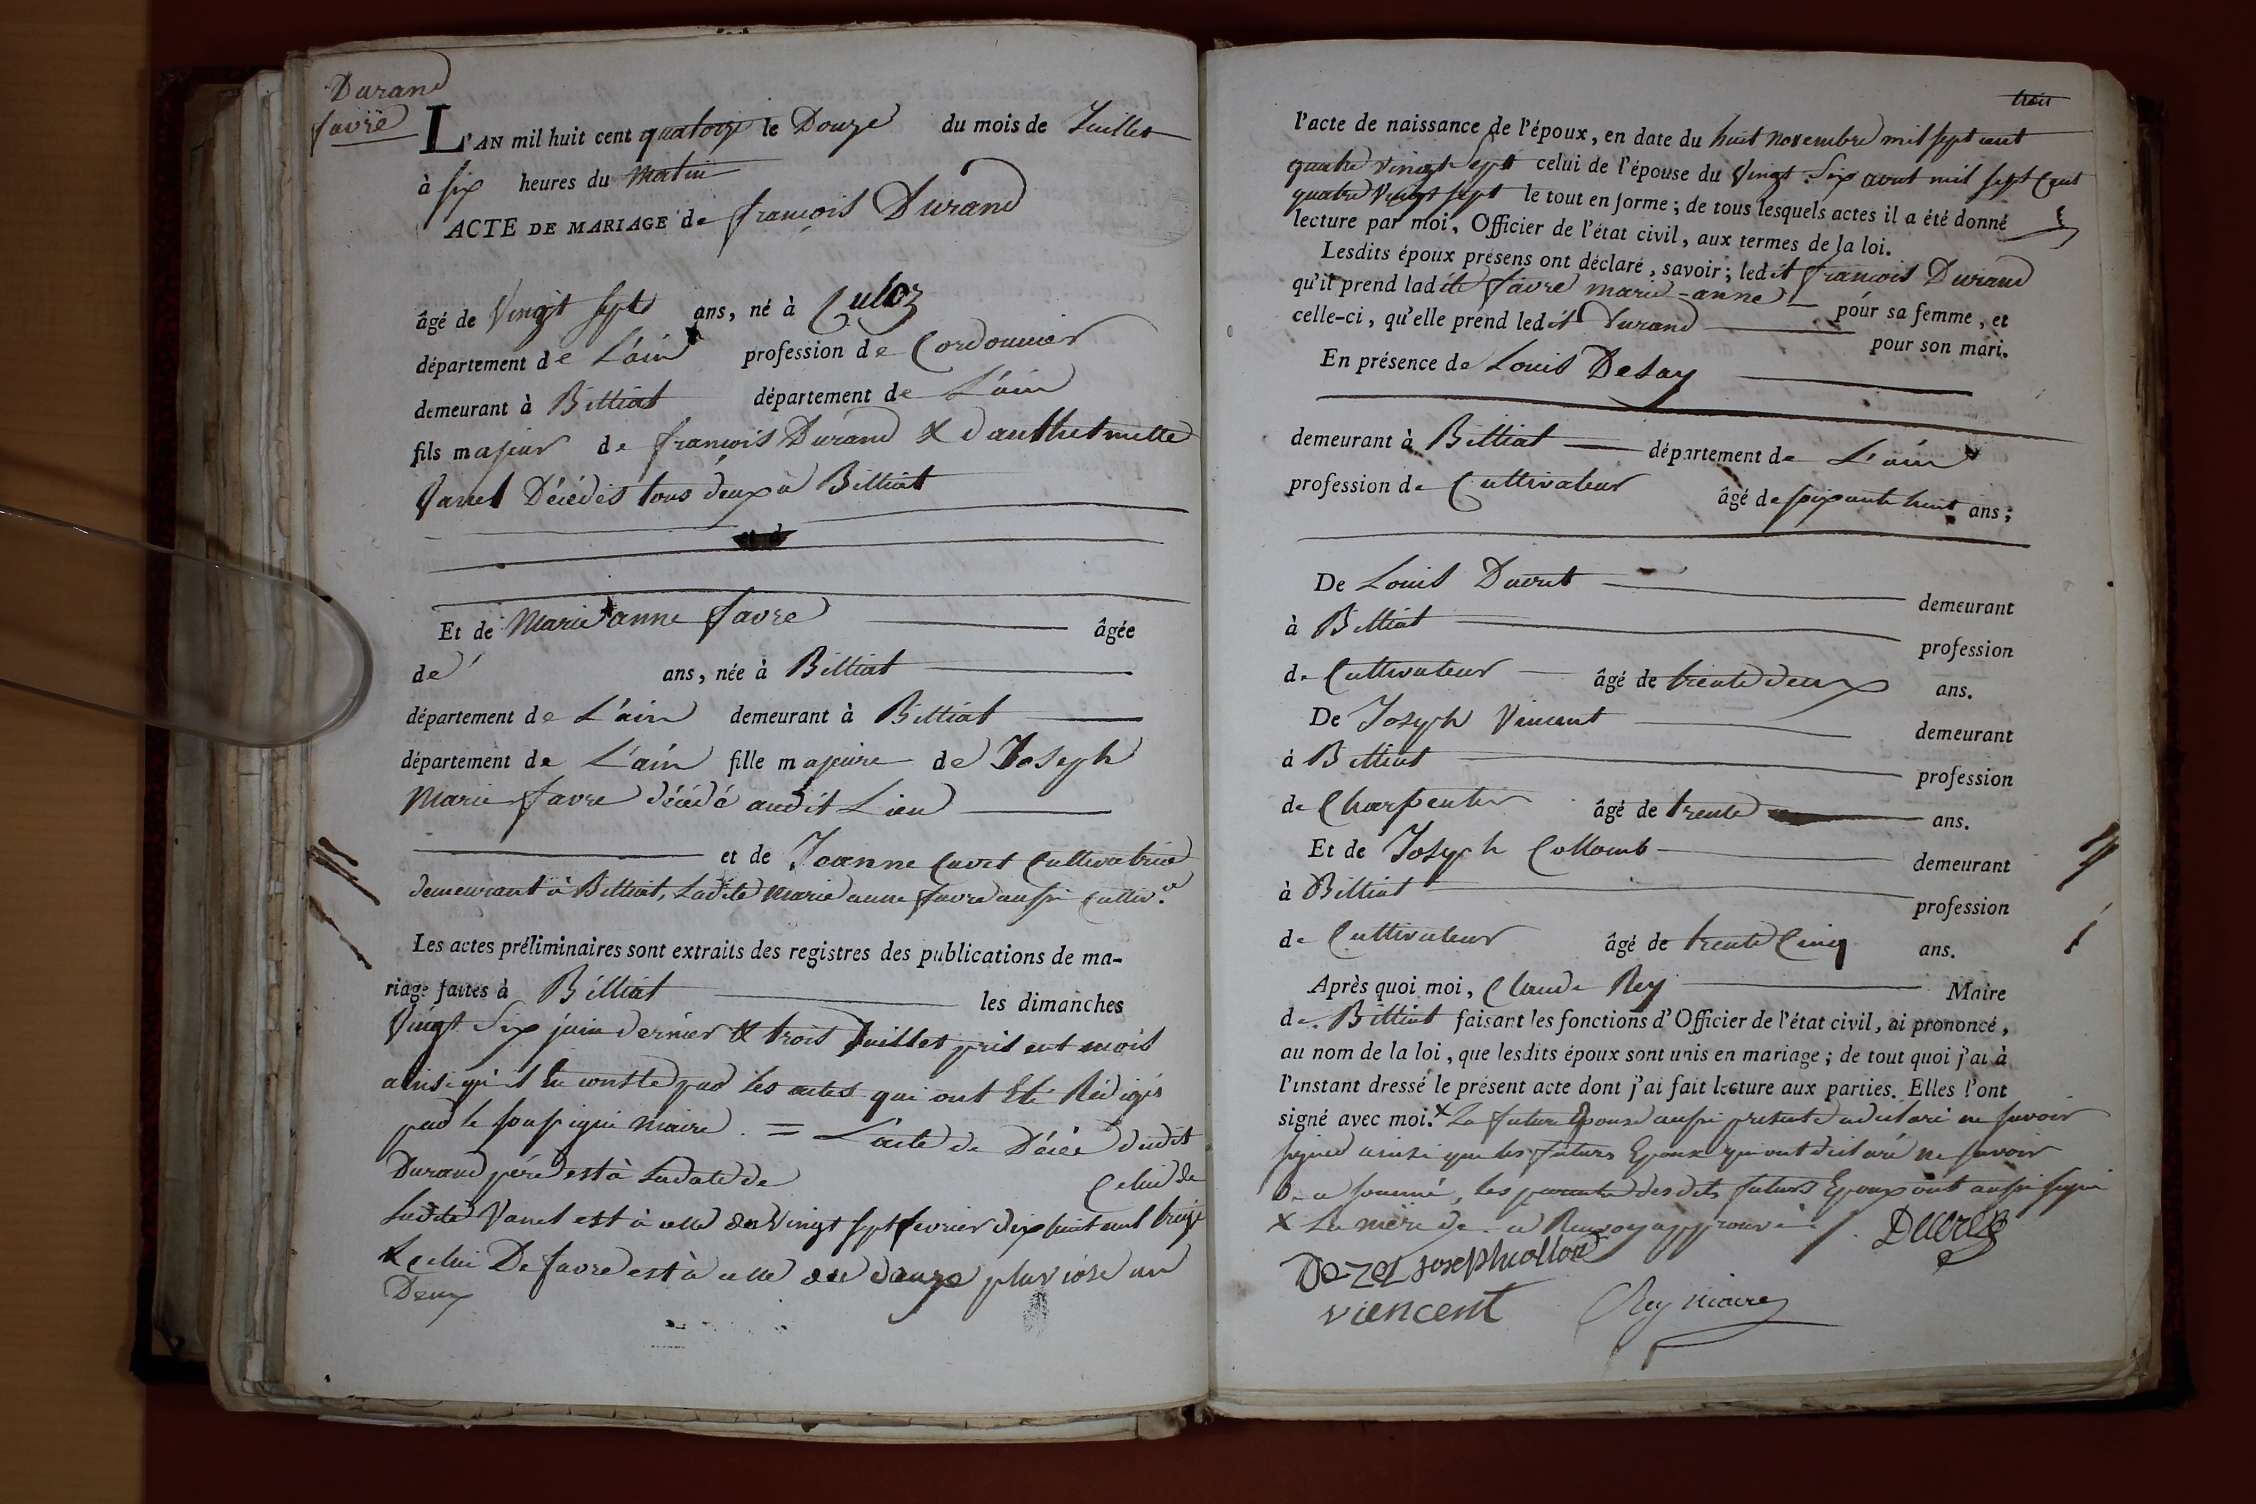 Durand
favre
L'AN mil huit cent quatorze le Douze du mois de Juillet
à six heures du matin
ACTE DE MARIAGE de françois Durand
âgé de Vingt sept ans, né à Culoz
département de L'ain profession de Cordonnier
demeurant à Billiat département de L'ain
fils majeur de françois Durand & d'anthelmette
Vanel Décédés tous deux à Billiat
Et de Marie anne favre âgée
de ans, née à Billiat
département de L'ain demeurant à Billiat
département de L'ain fille majeure de Joseph
Marie favre décédé audit Lieu
et de Joanne Cavet Cultivatrice
demeurant à Billiat, Ladite Marie anne favre aussi Cultiv.e
Les actes préliminaires sont extraits des registres des publications de ma-
riage faites à Billiat les dimanches
Vingt Six juin dernier & trois Juillet mois
ainsi qu'il conste par les actes qui ont Eté Rédigés
par le soussigné Maire. = L'acte de Décès dudit
Durand père est à Ladate de Celui de
Ladite Vanel est à celle du Vingt sept fevrier dix huit cent treize
& Celui De favre est à celle du douze pluviose an
Deux
trois
l'acte de naissance de l'époux, en date du huit novembre mil sept cent
quatre vingt Sept celui de l'épouse du Vingt Six avut mil sept Cent
quatre Vingt sept le tout en forme; de tous lesquels actes il a été donné
lecture par moi, Officier de l'état civil, aux termes de la loi.
Lesdits époux présens ont déclaré, savoir; ledit françois Durand
qu'il prend ladite favre marie-anne pour sa femme, et
celle-ci, qu'elle prend ledit Durand pour son mari.
En présence de Louis Dezay
demeurant à Billiat département de L'ain
profession de Cultivateur âgé de soixante huit ans;
De Louis Ducret demeurant
à Billiat profession
de Cultivateur âgé de trente deux ans.
De Joseph Vincent demeurant
à Billiat profession
de Charpentier âgé de trente ans.
Et de Joseph Collomb demeurant
à Billiat profession
de Cultivateur âgé de trente Cinq ans.
Après quoi moi, Claude Rey Maire
de Billiat faisant les fonctions d'Officier de l'état civil, ai prononcé,
au nom de la loi, que lesdits époux sont unis en mariage; de tout quoi j'ai à
l'instant dressé le présent acte dont j'ai fait lecture aux parties. Elles l'ont
signé avec moi. x La future Epouse aussi presente a declaré ne savoir
signer ainsi que les futurs Epoux qui ont declaré ne savoir
les desdits futurs Epoux ont aussi signé
x La mère de Renvoy approuvé. Ducret
Dezel joseph collon
viencent Rey Maire